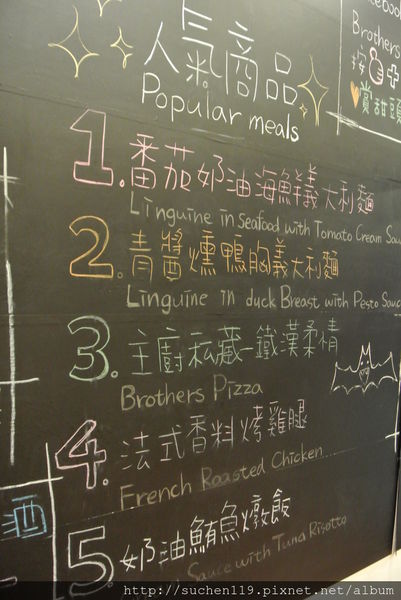 人氣商品
Popular meals
Brothers
按
賞甜頭
1. 番茄奶油海鮮義大利麵
Linguine in seafood with Tomato Cream Sau
2. 青醬燻鴨胸義大利麵
Linguine in duck Breast with Pesto Sauc
3. 主廚私藏-鐵漢柔情
Brothers Pizza
4. 法式香料烤雞腿
French Roasted Chicken...
5. 奶油鮪魚燉飯
Sauce with Tuna Risotto
酒
http://suchen119.pixnet.net/album